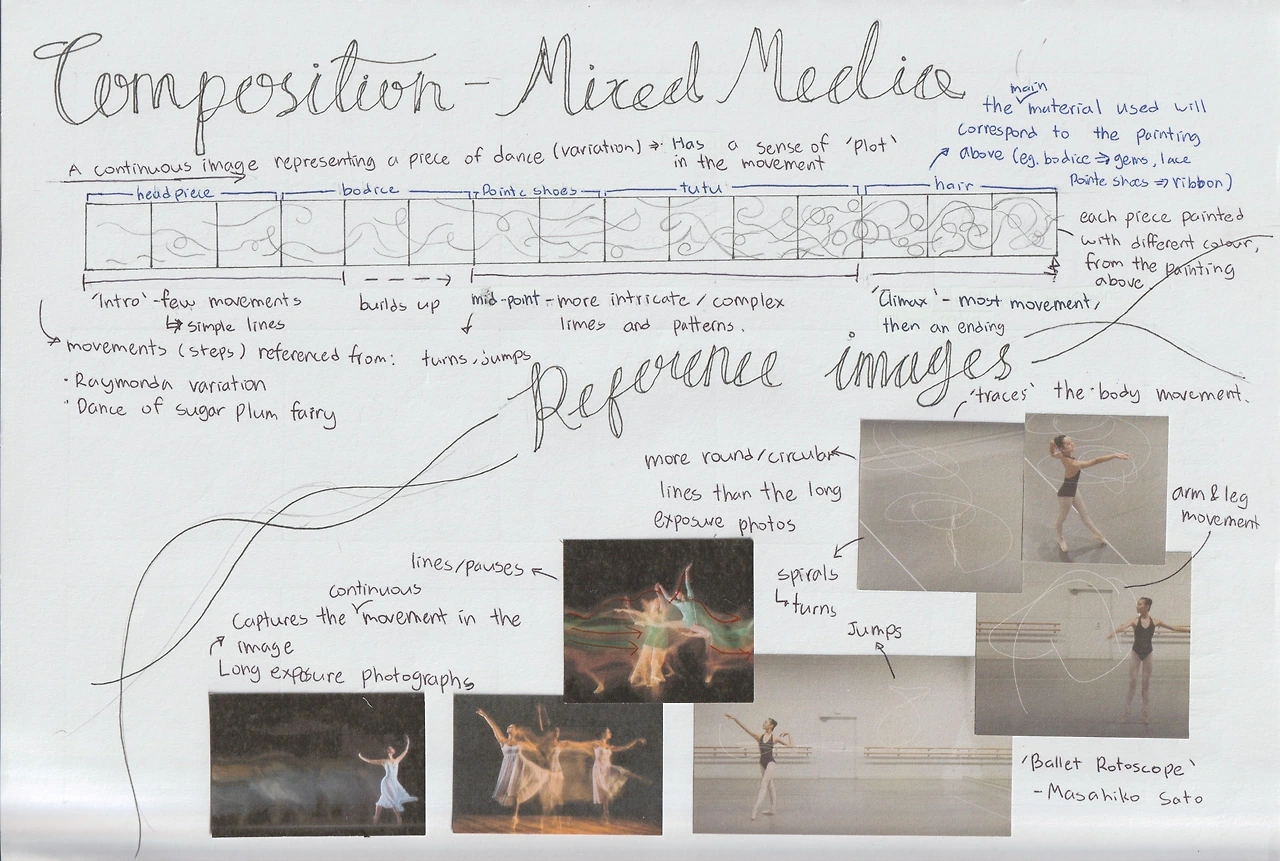 Composition - Mixed Media
the main material used will
correspond to the painting
above (eg. bodice ⇒ gems, lace
Pointe shoes ⇒ ribbon)
A continuous image representing a piece of dance (variation) → Has a sense of 'plot'
in the movement
headpiece bodice Pointe shoes tutu hair
each piece painted
with different colour,
from the painting
above.
'Intro' - few movements
↳ simple lines
builds up
mid-point - more intricate / complex
limes and patterns.
'Climax' - most movement,
then an ending
movements (steps) referenced from:
turns, jumps
· Raymonda variation
· Dance of sugar plum fairy
Reference images
'traces' the body movement.
more round/circular
lines than the long
exposure photos
arm & leg
movement
spirals
↳ turns
Jumps
lines/pauses
Captures the continuous movement in the
image
Long exposure photographs
'Ballet Rotoscope'
- Masahiko Sato